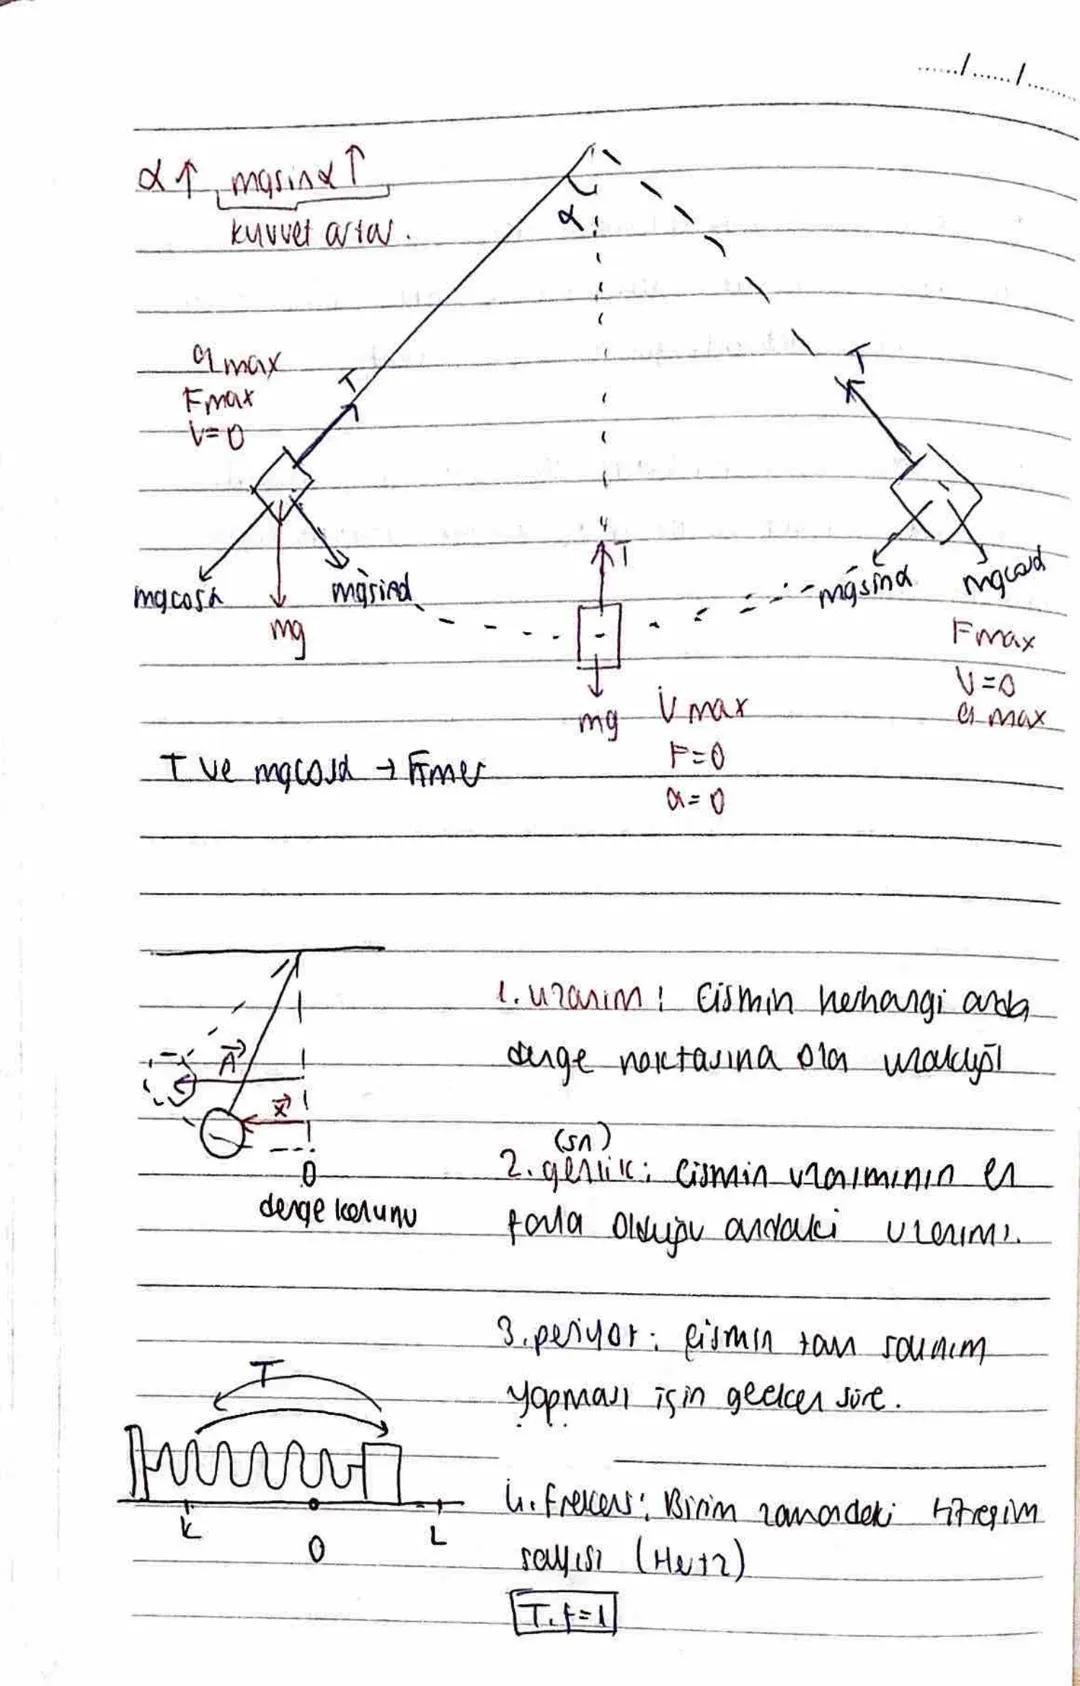 ...../...../.....
α↑ mgsinα↑
kuvvet artar.
α
amax
Fmax
V=0
T
T
mgcosα
mg
mgsinα
T
mg
Vmax
F=0
a=0
mgsinα
mgcosα
Fmax
V=0
a max
T ve mgcosα →
1. uzanım: Cismin herhangi anda
denge noktasına olan uzaklığı
A
x
O
denge konumu
(sn)
2. genlik: Cismin uzanımının en
fazla olduğu andaki uzanımı.
3. periyot: Cismin tam salınım
yapması için geçen süre.
T
K
O
L
4. frekans: Birim zamandaki titreşim
sayısı (Hertz)
T.f=1